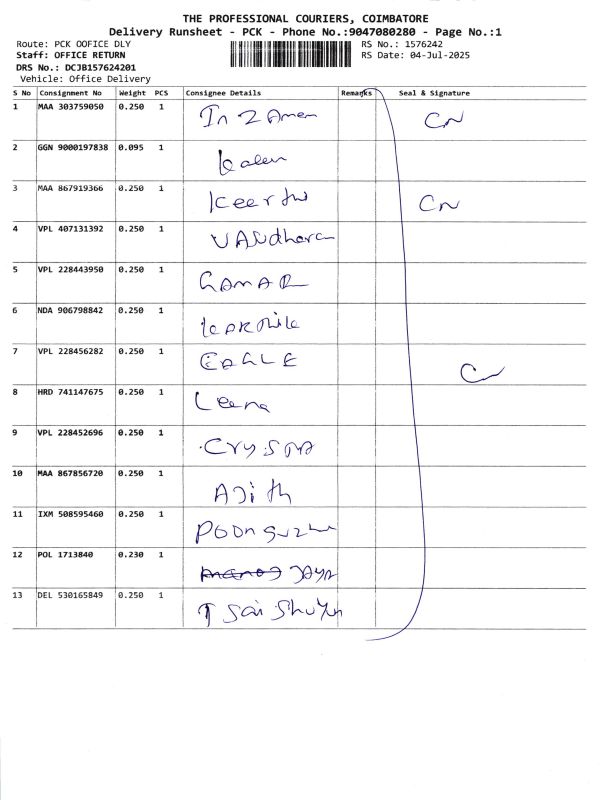 THE PROFESSIONAL COURIERS, COIMBATORE
Delivery Runsheet - PCK - Phone No.:9047080280 - Page No.:1
Route: PCK OOFICE DLY RS No.: 1576242
Staff: OFFICE RETURN RS Date: 04-Jul-2025
DRS No.: DCJB157624201
Vehicle: Office Delivery
S No Consignment No Weight PCS Consignee Details Remarks Seal & Signature
1 MAA 303759050 0.250 1 CN
2 GGN 9000197838 0.095 1
3 MAA 867919366 0.250 1 CN
4 VPL 407131392 0.250 1 VASUdhara
5 VPL 228443950 0.250 1
6 NDA 906798842 0.250 1
7 VPL 228456282 0.250 1 EAGLE
8 HRD 741147675 0.250 1 Leena
9 VPL 228452696 0.250 1
10 MAA 867856720 0.250 1 AJith
11 IXM 508595460 0.250 1
12 POL 1713840 0.230 1 JAYA
13 DEL 530165849 0.250 1